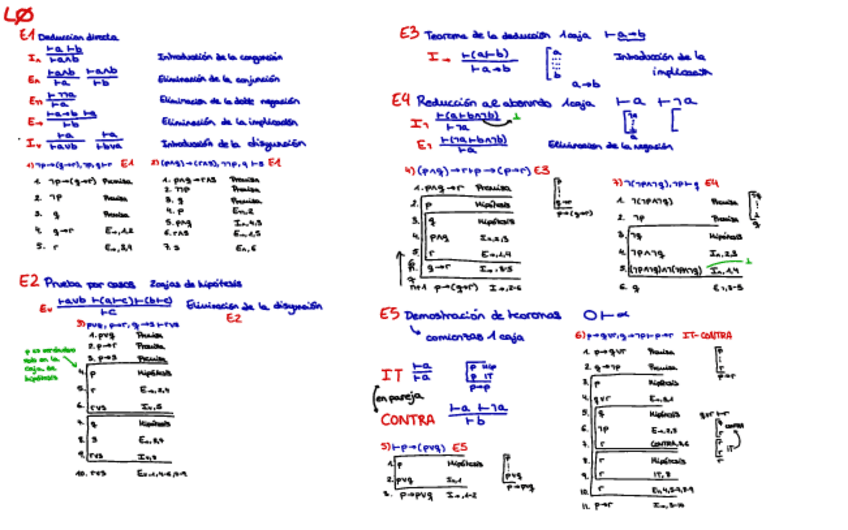 LØ
E1 Deducción directa
I∧ ⊢a ⊢b / ⊢a∧b Introducción de la conjunción
E∧ ⊢a∧b / ⊢a ⊢a∧b / ⊢b Eliminación de la conjunción
E¬ ⊢¬¬a / ⊢a Eliminación de la doble negación
E→ ⊢a→b ⊢a / ⊢b Eliminación de la implicación
I∨ ⊢a / ⊢a∨b ⊢a / ⊢b∨a Introducción de la disyunción
1) ¬p→(q→r), ¬p, q⊢r E1
1. ¬p→(q→r) Premisa
2. ¬p Premisa
3. q Premisa
4. q→r E→,1,2
5. r E→,3,4
2) (p∧q)→(r∧s), ¬¬p, q ⊢s E1
1. p∧q→r∧s Premisa
2. ¬¬p Premisa
3. q Premisa
4. p E¬,2
5. p∧q I∧,4,3
6. r∧s E→,1,5
7. s E∧,6
E2 Prueba por casos 2 cajas de hipótesis
E∨ ⊢a∨b ⊢(a⊢c) ⊢(b⊢c) / ⊢c Eliminación de la disyunción
E2
3) p∨q, p→r, q→s ⊢r∨s
1. p∨q Premisa
2. p→r Premisa
3. p→s Premisa
p es verdadero
solo en la
caja de
hipótesis
4. p Hipótesis
5. r E→,2,4
6. r∨s I∨,5
7. q Hipótesis
8. s E→,3,7
9. r∨s I∨,8
10. r∨s E∨,1,4-6,7-9
E3 Teorema de la deducción 1 caja ⊢a→b
I→ ⊢(a⊢b) / ⊢a→b
a
b
a→b
Introducción de la
implicación
E4 Reducción al absurdo 1 caja ⊢a ⊢¬a
I¬ ⊢(a⊢b∧¬b) / ⊢¬a ⊥
E¬ ⊢(¬a⊢b∧¬b) / ⊢a Eliminación de la negación
4) (p∧q)→r⊢p→(q→r) E3
1. p∧q→r Premisa
2. p Hipótesis
3. q Hipótesis
4. p∧q I∧,2,3
5. r E→,1,4
q→r I→,3-5
n+1 p→(q→r) I→,2-6
p
q→r
p→(q→r)
7) ¬(¬p∧¬q), ¬p⊢q E4
1. ¬(¬p∧¬q) Premisa
2. ¬p Premisa
3. ¬q Hipótesis
4. ¬p∧¬q I∧,2,3
5. (¬p∧¬q)∧¬(¬p∧¬q) I∧,1,4 ⊥
6. q E¬,3-5
¬q
⊥
q
E5 Demostración de teoremas 0⊢α
comienzas 1 caja
IT ⊢a / ⊢a
p Hip
p IT
p→p
en pareja
CONTRA ⊢a ⊢¬a / ⊢b
5) ⊢p→(p∨q) E5
1. p Hipótesis
2. p∨q I∨,1
3. p→p∨q I→,1-2
p
p∨q
p→p∨q
6) p→q∨r, q→¬p⊢p→r IT-CONTRA
1. p→q∨r Premisa
2. q→¬p Premisa
3. p Hipótesis
4. q∨r E→,3,1
5. q Hipótesis
6. ¬p E→,2,5
7. r CONTRA,3,6
8. r Hipótesis
9. r IT,8
10. r E∨,4,5-7,8-9
11. p→r I→,3-10
p
r
p→r
q∨r ⊢r
q
r CONTRA
r
r IT